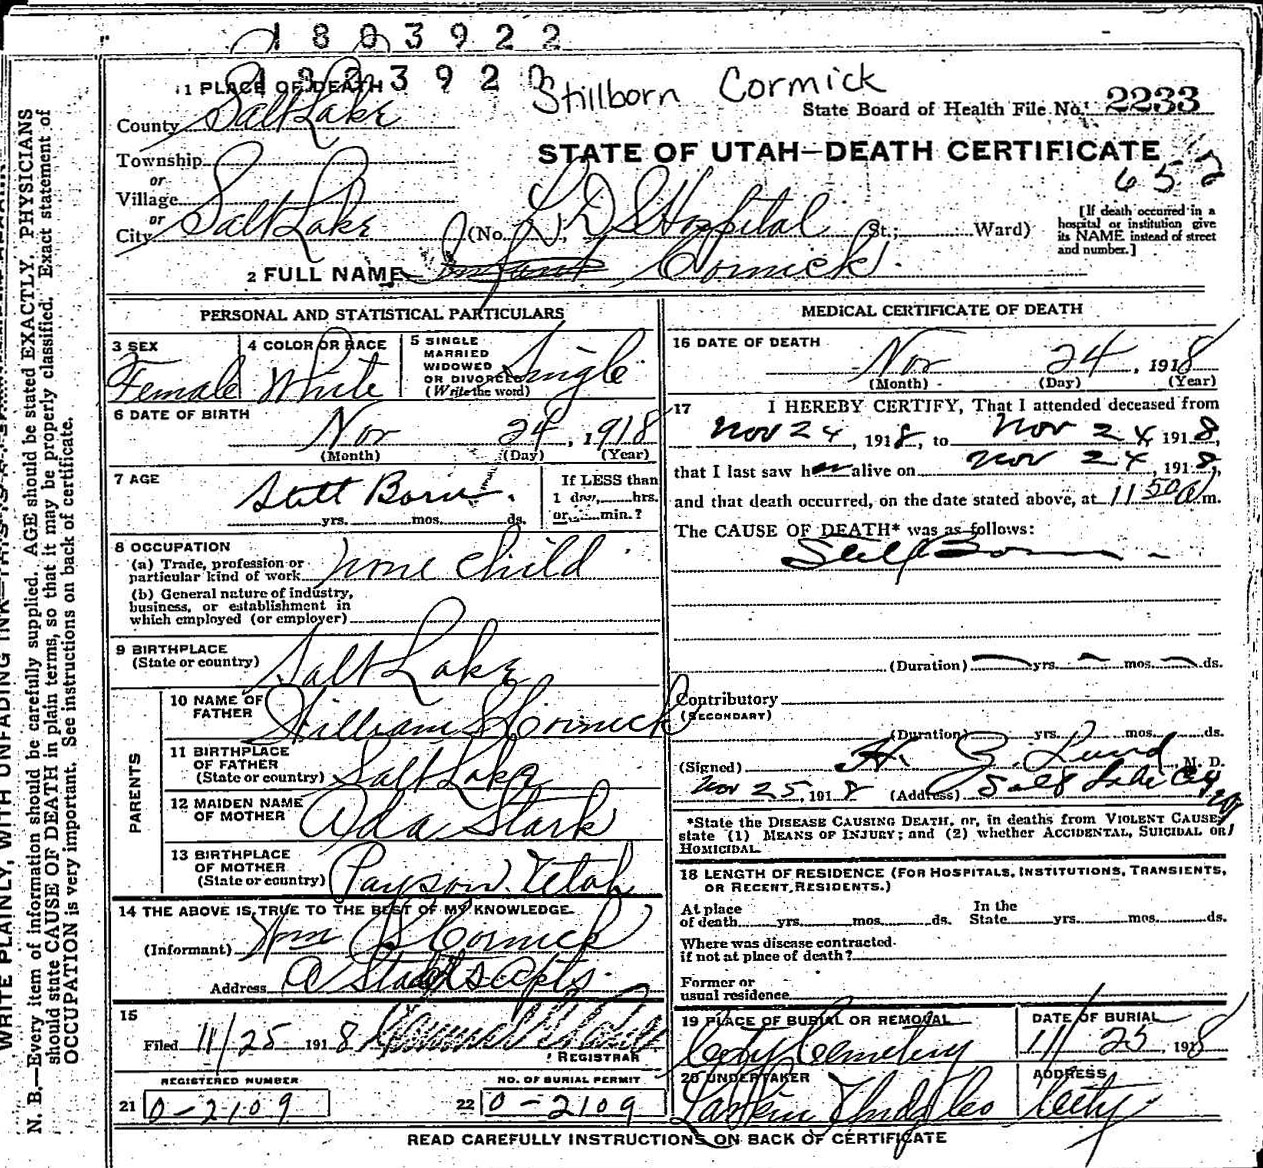 1803922
Stillborn Cormick
State Board of Health File No. 2233
STATE OF UTAH—DEATH CERTIFICATE
652
1 PLACE OF DEATH
County Salt Lake
Township
or
Village
or
City Salt Lake (No. L D S Hospital St.; Ward)
[If death occurred in a hospital or institution give its NAME instead of street and number.]
2 FULL NAME Infant Cormick.
PERSONAL AND STATISTICAL PARTICULARS
3 SEX Female
4 COLOR OR RACE White
5 SINGLE MARRIED WIDOWED OR DIVORCED (Write the word) Single
6 DATE OF BIRTH
Nov 24, 1918
(Month) (Day) (Year)
7 AGE
Still Born.
yrs. mos. ds.
If LESS than 1 day, hrs. or min.?
8 OCCUPATION
(a) Trade, profession or particular kind of work none child
(b) General nature of industry, business, or establishment in which employed (or employer)
9 BIRTHPLACE
(State or country) Salt Lake
PARENTS
10 NAME OF FATHER William S Cormick
11 BIRTHPLACE OF FATHER
(State or country) Salt Lake
12 MAIDEN NAME OF MOTHER Ada Stark
13 BIRTHPLACE OF MOTHER
(State or country) Payson Utah
14 THE ABOVE IS TRUE TO THE BEST OF MY KNOWLEDGE
(Informant) Wm S Cormick
Address
15
Filed 11/25 1918
REGISTRAR
REGISTERED NUMBER
21 0-2109
NO. OF BURIAL PERMIT
22 0-2109
MEDICAL CERTIFICATE OF DEATH
16 DATE OF DEATH
Nov 24, 1918
(Month) (Day) (Year)
17 I HEREBY CERTIFY, That I attended deceased from
Nov 24, 1918, to Nov 24 1918,
that I last saw her alive on Nov 24, 1918,
and that death occurred, on the date stated above, at 11 50 a m.
The CAUSE OF DEATH* was as follows:
Still Born
(Duration) yrs. mos. ds.
Contributory
(SECONDARY)
(Duration) yrs. mos. ds.
(Signed) H. Z. Lund, M. D.
Nov 25, 1918 (Address) Salt Lake City
*State the DISEASE CAUSING DEATH, or, in deaths from VIOLENT CAUSES state (1) MEANS OF INJURY; and (2) whether ACCIDENTAL, SUICIDAL OR HOMICIDAL.
18 LENGTH OF RESIDENCE (FOR HOSPITALS, INSTITUTIONS, TRANSIENTS, OR RECENT RESIDENTS.)
At place of death yrs. mos. ds. In the State yrs. mos. ds.
Where was disease contracted
if not at place of death?
Former or
usual residence
19 PLACE OF BURIAL OR REMOVAL
City Cemetery
DATE OF BURIAL
11/25, 1918
20 UNDERTAKER
Larkin Undg Co
ADDRESS
City
READ CAREFULLY INSTRUCTIONS ON BACK OF CERTIFICATE
N. B.—Every item of information should be carefully supplied. AGE should be stated EXACTLY. PHYSICIANS
should state CAUSE OF DEATH in plain terms, so that it may be properly classified. Exact statement of
OCCUPATION is very important. See instructions on back of certificate.
WRITE PLAINLY, WITH UNFADING INK—THIS IS A